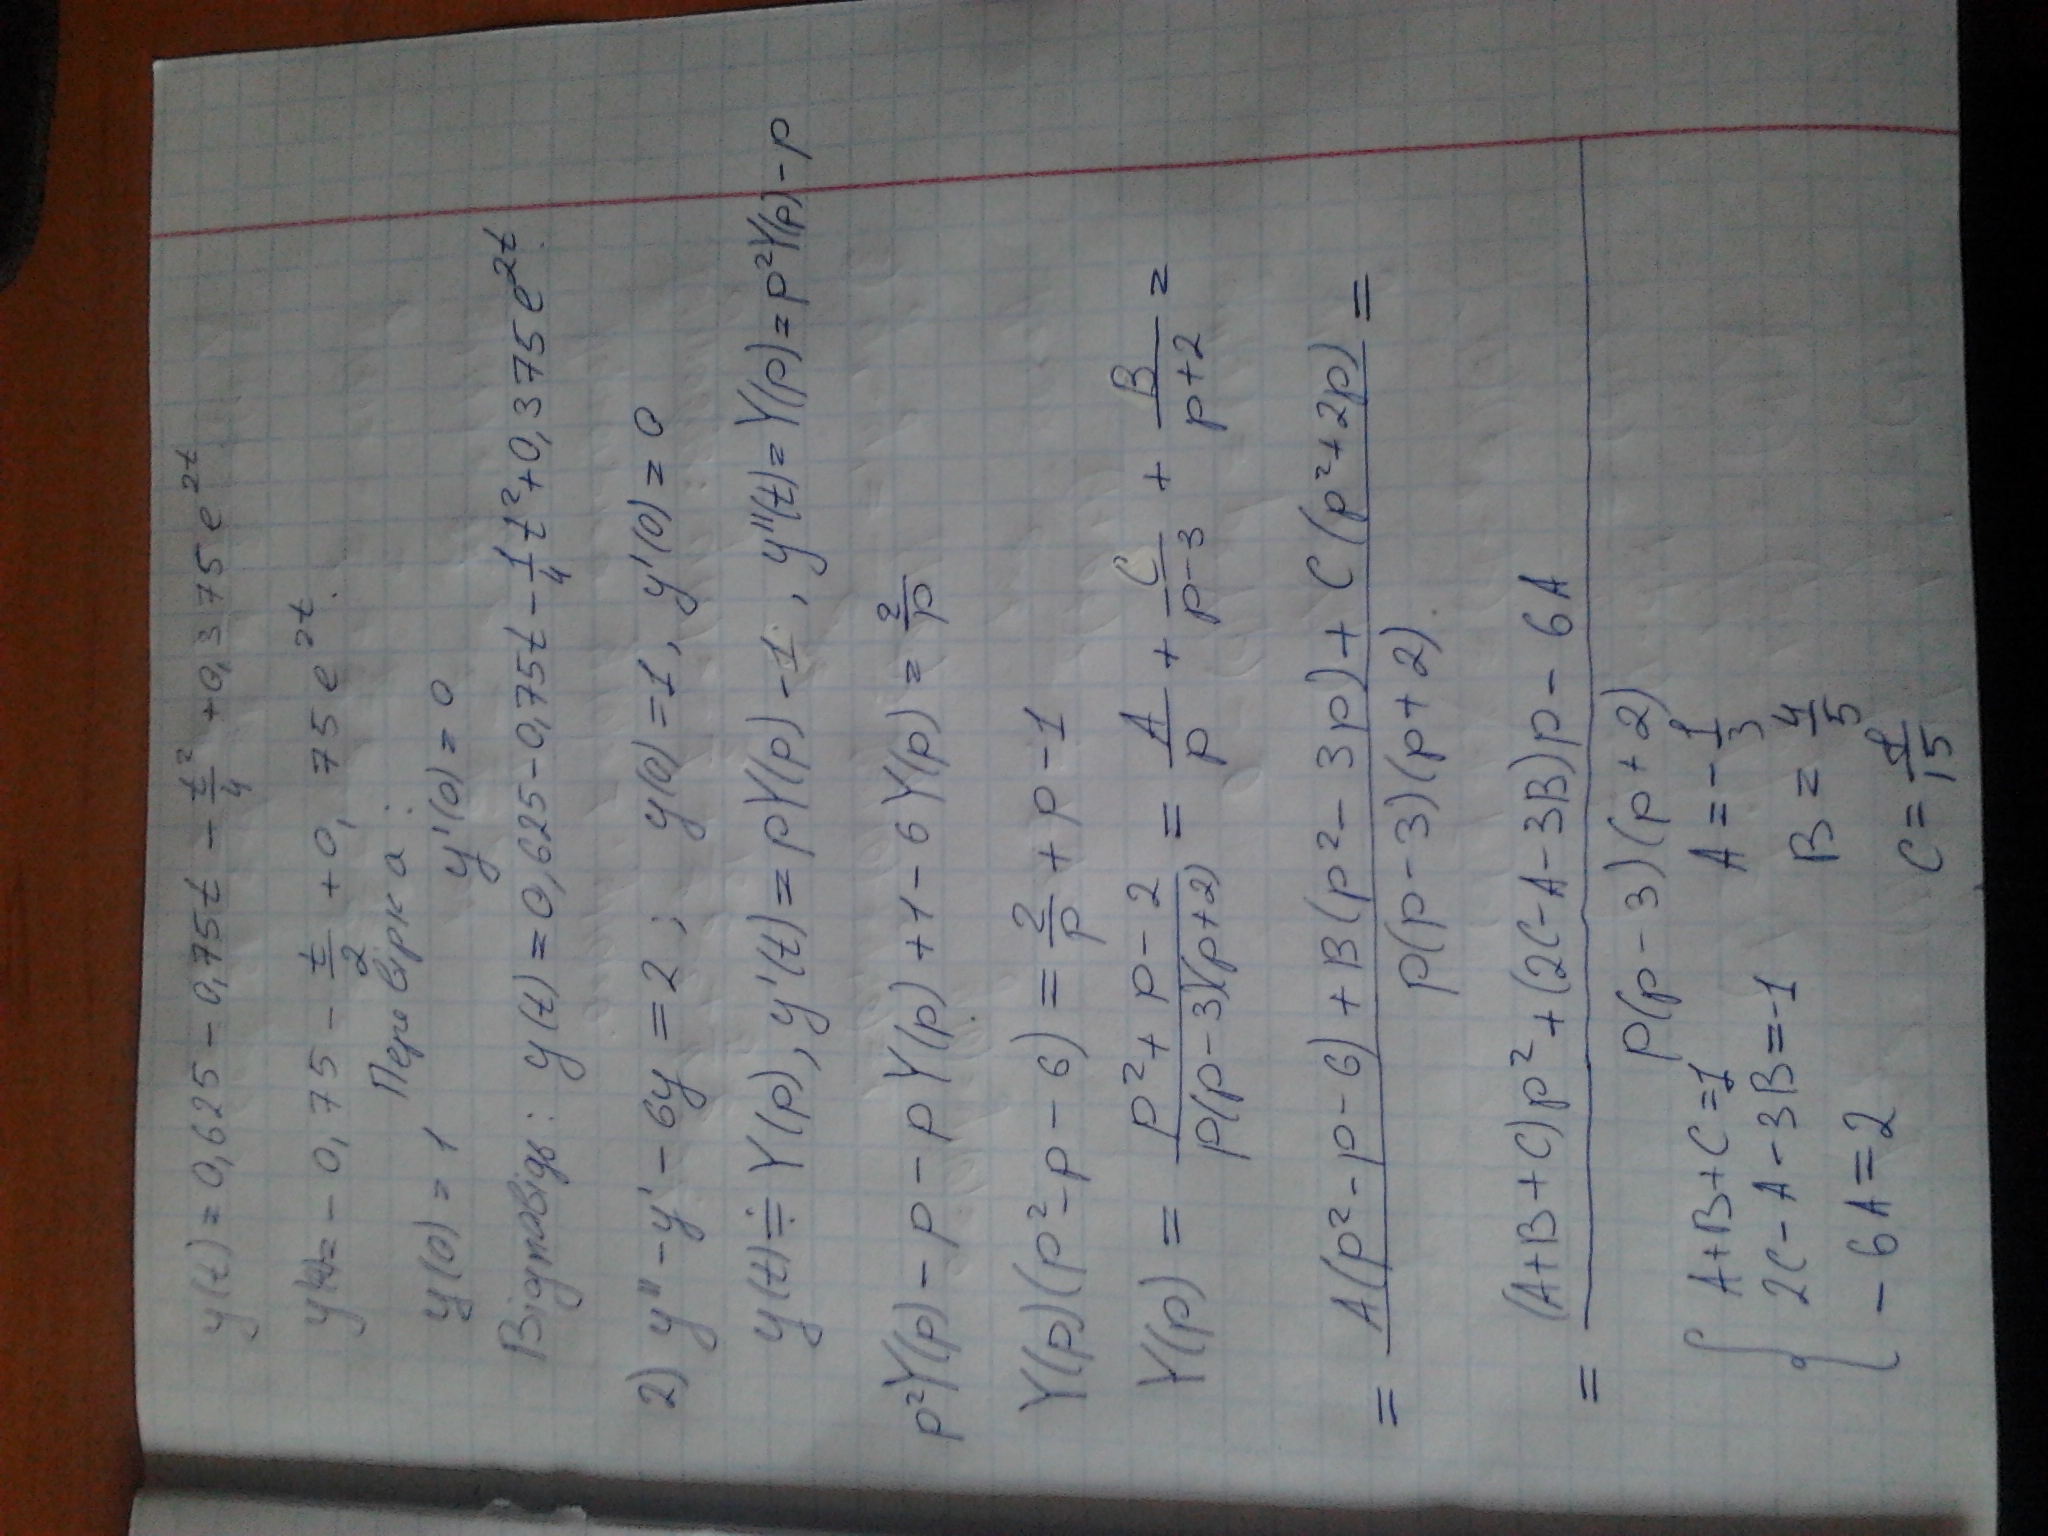 y(t) = 0,625 - 0,75t - t²/4 + 0,375e^{2t}
y'(t) = -0,75 - t/2 + 0,75e^{2t}.
Перевірка:
y(0) = 1 y'(0) = 0
Відповідь: y(t) = 0,625 - 0,75t - 1/4 t² + 0,375e^{2t}.
2) y'' - y' - 6y = 2 ; y(0) = 1, y'(0) = 0
y(t) ≑ Y(p), y'(t) = pY(p) - 1 , y''(t) = Y(p) = p²Y(p) - p
p²Y(p) - p - pY(p) + 1 - 6Y(p) = 2/p
Y(p)(p² - p - 6) = 2/p + p - 1
Y(p) = (p² + p - 2)/(p(p-3)(p+2)) = A/p + C/(p-3) + B/(p+2) =
= (A(p² - p - 6) + B(p² - 3p) + C(p² + 2p))/(p(p-3)(p+2)). =
= ((A+B+C)p² + (2C-A-3B)p - 6A)/(p(p-3)(p+2))
{ A+B+C=1 A = -1/3
2C-A-3B=-1 B = 4/5
-6A=2 C = /15